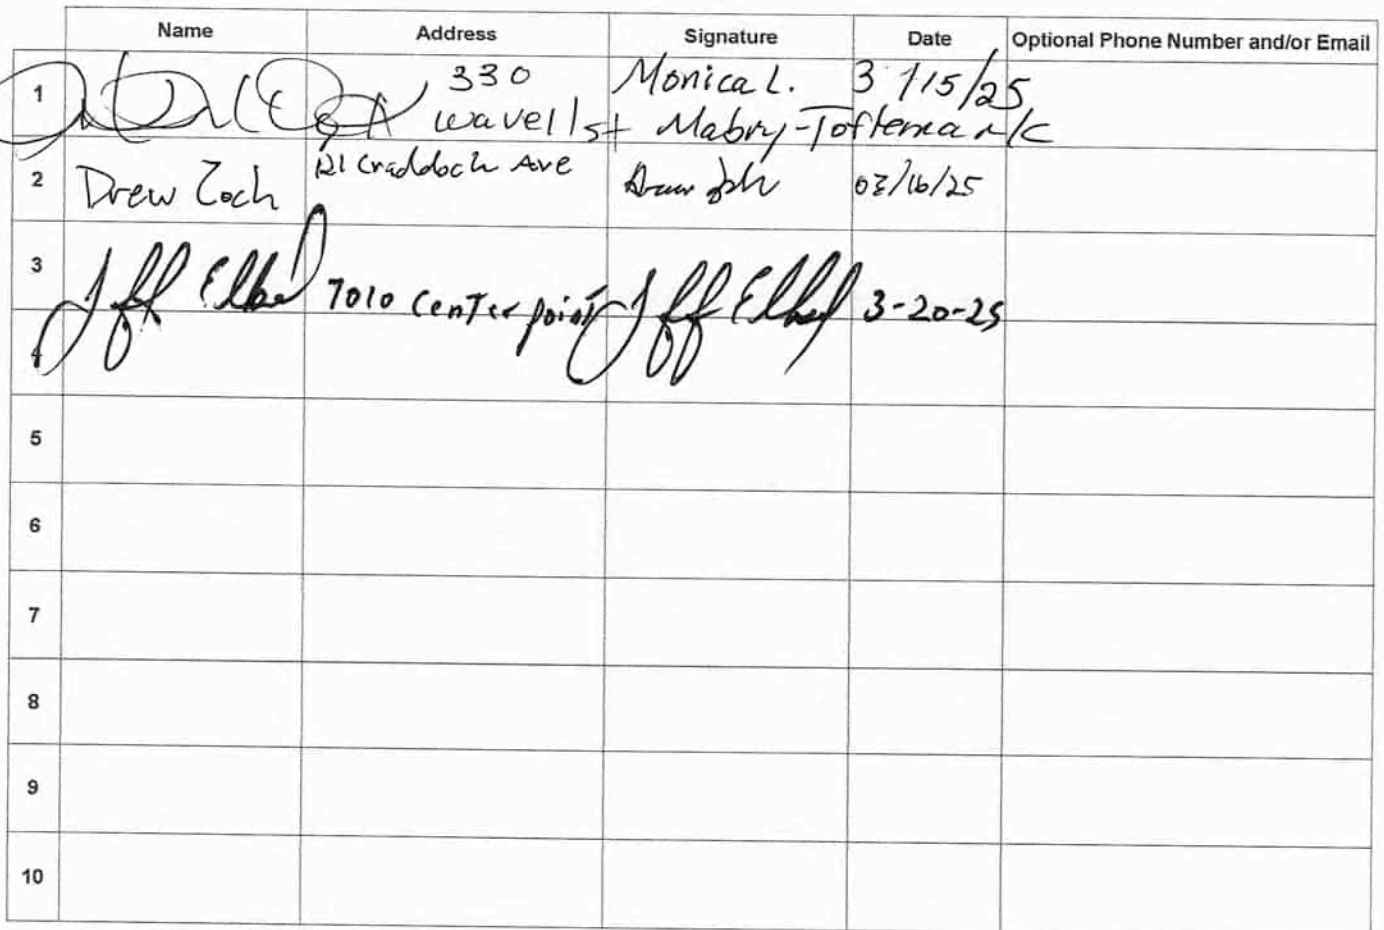 Name Address Signature Date Optional Phone Number and/or Email
1 330 Monica L. 3/15/25
wavell st Mabry-Toftemark
2 Drew Zoch 121 Craddock Ave 03/16/25
3 Jeff Elbel 7010 Center point Jeff Elbel 3-20-25
4
5
6
7
8
9
10